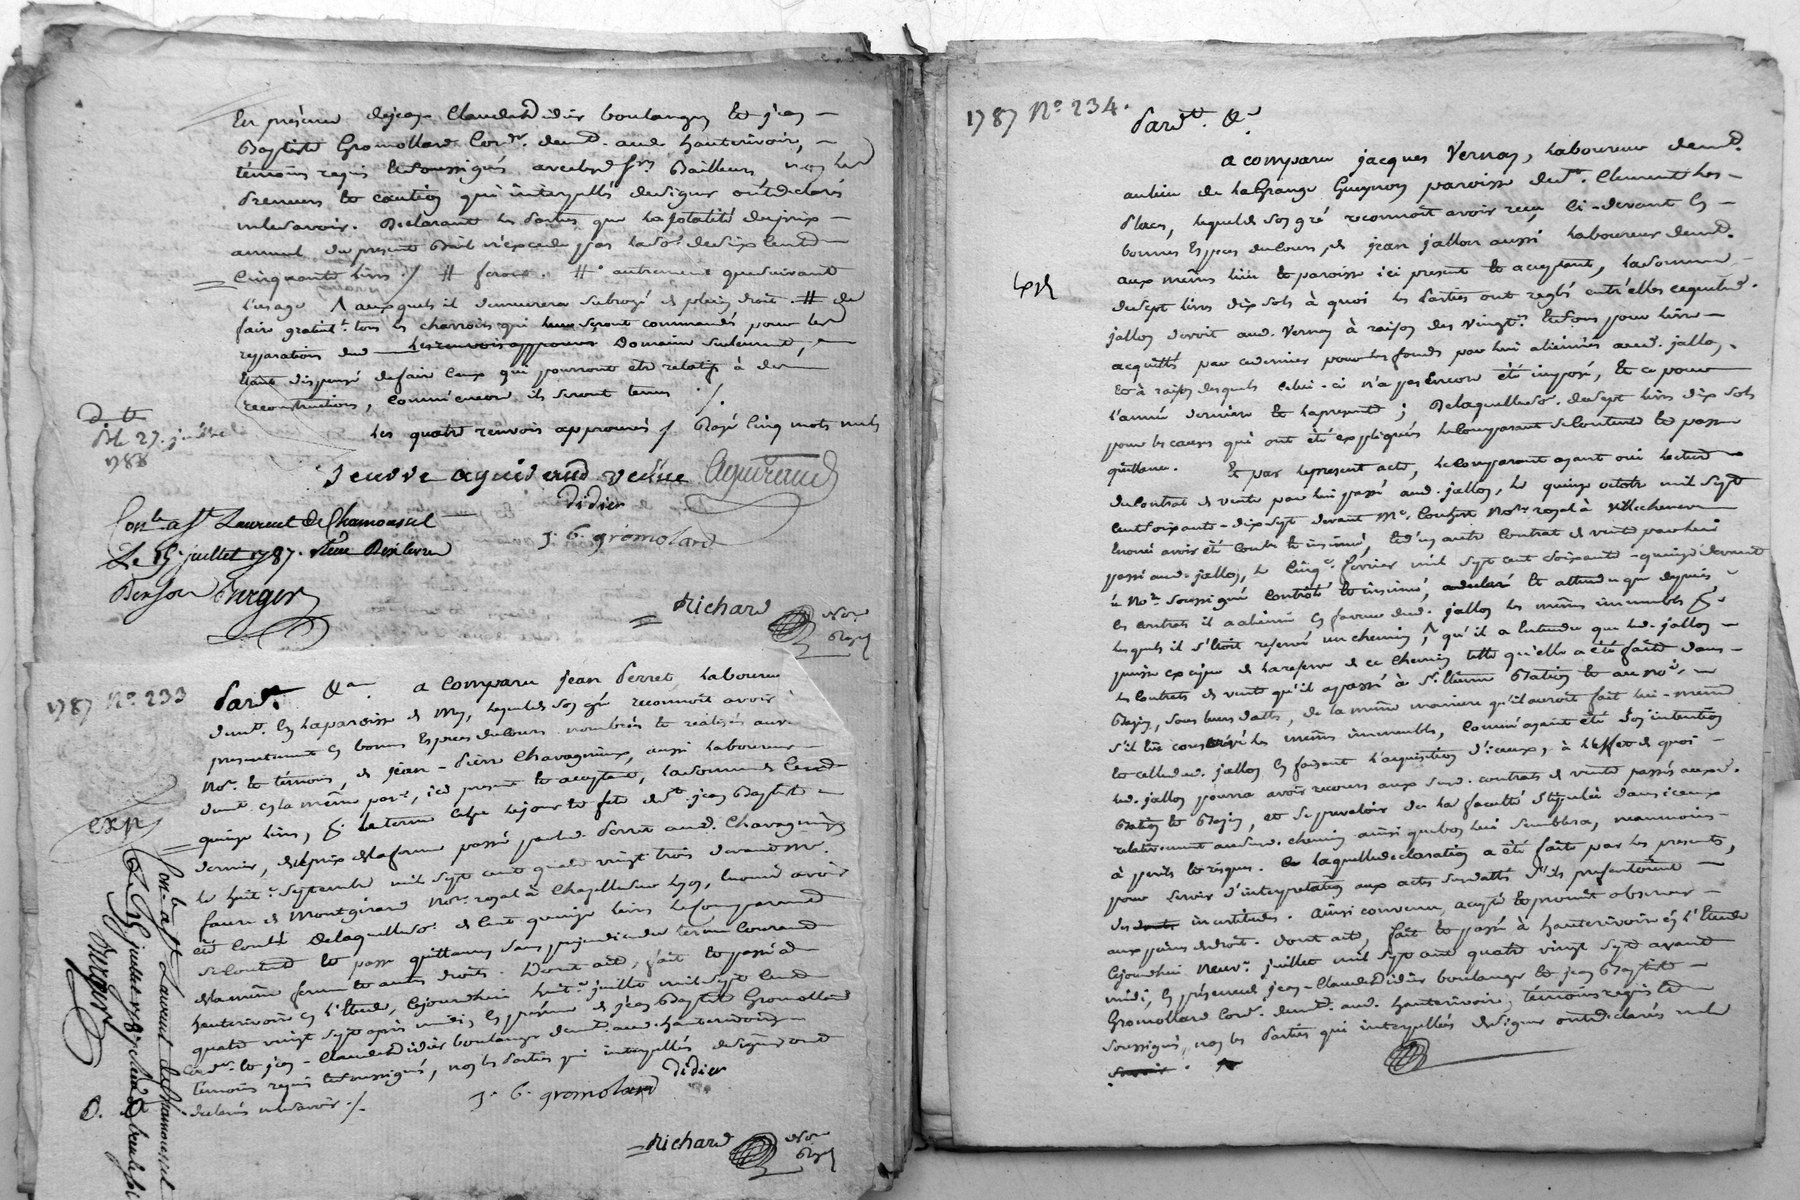 En présence de jean Claude didier boulanger et jean
Baptiste Gromollard Cord.r demt. aud hauterivoire,
témoins requis et soussignés avec lesd. srs Bailleurs, non les
preneurs et caution qui interpellés de signer ont déclaré
ne le savoir. Déclarant les parties que la totalité du prix
annuel du present Bail n'excede pas la so.e de six Cent
Cinquante livres ./. # feront. # autrement que suivant
l'usage auxquels il demeurera subrogé de plein droit. # de
faire gratuit.t tous les charrois qui seront commandés pour les
reparations dud Domaine seulement,
étant dispensé de faire ceux qui pourront etre relatifs à des
reconstructions, comm'encore ils seront tenus ./.
les quatre renvois approuvés / Rayé Cinq mots nuls
d. du
27. juillet
1788
veuve aguiraud
didier
J. B. gromolard
Con.le a St Laurent de Chamousset
Le 15 juillet 1787.
Berger
Richard
No.re
Royal
1787 No. 233
Pard.t &a. a comparu jean Perret, laboureur
demt. en la paroisse de lequel de son gré reconnoit avoir
presentement en bonnes Especes du Cours nombrées et realisés aux
No.re et témoins, de jean-Pierre Chavagnieux, aussi laboureur
demt. en la même par.e, ici present et acceptant, la somme de Cent
quinze livres, le terme echu le jour et fete de St. jean Baptiste
dernier, du prix de la ferme passé par led. Perret aud. Chavagnieux
le huit.e septembre mil sept cent quatre vingt trois devant Me.
faure de Montgirard No.re royal à Chazelles sur Lyon, énoncé avoir
été Contrôlé De laquelle so.e de Cent quinze livres le Comparant
se Contente et passe quittance sans prejudice du terme Courant
de la même ferme et autres droits. Dont acte, fait et passé à
hauterivoire en l'Etude, cejourdhui huit.e juillet mil sept Cent
quatre vingt sept après midi, En présence de jean Baptiste Gromollard
Cord.r et jean-Claude didier boulanger demt. aud. hauterivoire
témoins requis et soussignés, non les Parties qui interpellés de signer ont
declaré ne le savoir ./.
didier
J. B. gromolard
Richard
No.re
Royal
exp
Con.le a St Laurent de Chamousset
Le 15 juillet 1787
Berger
1787 No. 234.
Pard.t &a.
a comparu jacques Vernay, laboureur demt.
au lieu de la Grange Gueynon paroisse de St. Clement les
Places, lequel de son gré reconnoit avoir reçu ci-devant en
bonnes Especes du Cours de jean jallon aussi laboureur demt.
aux mêmes lieu et paroisse ici present et acceptant, la somme
de sept livres dix sols à quoi les Parties ont reglé entr'elles ce que led.
jallon devoit aud. Vernay à raison des vingt.es
acquittés par ce dernier pour les fonds par lui alienés aud. jallon,
et à raison desquels celui-ci n'a pas Encore été imposé, et ce pour
l'année derniere et la presente; De laquelle so.e de sept livres dix sols
pour les causes qui ont été expliqués le Comparant se Contente et passe
quittance. Et par le present acte, le Comparant ayant oui lecture
du Contrat de vente par lui passé aud. jallon, le quinze octobre mil sept
cent soixante-dix sept devant Me. No.re royal à Villechenève
énoncé avoir été Contrôlé et insinué, et d'un autre Contrat de vente par lui
passé aud. jallon, le Cinq.e fevrier mil sept cent soixante-quinze devant
le No.re soussigné Contrôlé et insinué, a declaré et attendu que depuis
les contrats il a aliéné en faveur dud. jallon les mêmes immeubles
lesquels il s'étoit reservé un chemin, qu'il a Entendu que led. jallon
puisse exciper de la reserve de ce Chemin telle qu'elle a été faite dans
les Contrats de vente qu'il a passé à St. Etienne Bation et au no.é
Bazin, sous leurs dattes, de la même maniere qu'il auroit fait lui-même
s'il eut conservé les mêmes immeubles, Comm'ayant été son intention
et celle dud. jallon en faisant l'acquisition d'iceux, à l'effet de quoi
led. jallon pourra avoir recours aux susd. contrats de vente passés auxd.
Bation et Bazin, et se prevaloir de la faculté stipulée dans iceux
relativement audit. chemin ainsi que bon lui semblera, neanmoins
à perils et risques. laquelle declaration a été faite par les presentes,
pour servir d'interpretation aux actes susdattés s'ils presentoient
des incertitudes. Ainsi convenu, accepté et promis observer
aux peines de droit. dont acte, fait et passé à hauterivoire en l'Etude
cejourdhui neuv.e juillet mil sept cent quatre vingt sept avant
midi, En présence de jean-Claude didier boulanger et jean Baptiste
Gromollard Cord.r demt. aud. hauterivoire, témoins requis et
soussignés, non les Parties qui interpellés de signer ont déclaré ne le
savoir.